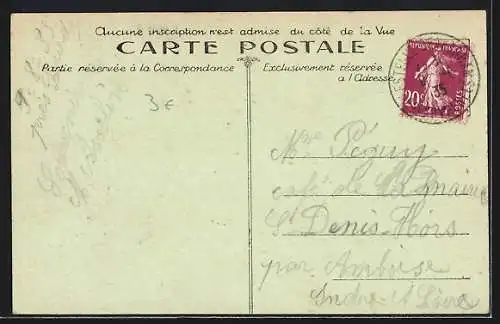 Aucune inscription n'est admise du côté de la Vue
CARTE POSTALE
Partie réservée à la Correspondance
Exclusivement réservée
à l'Adresse
3€
REPUBLIQUE FRANÇAISE
20c
POSTES
35
Péguy
café de la Mairie
St Denis Hors
par Amboise
Indre et Loire